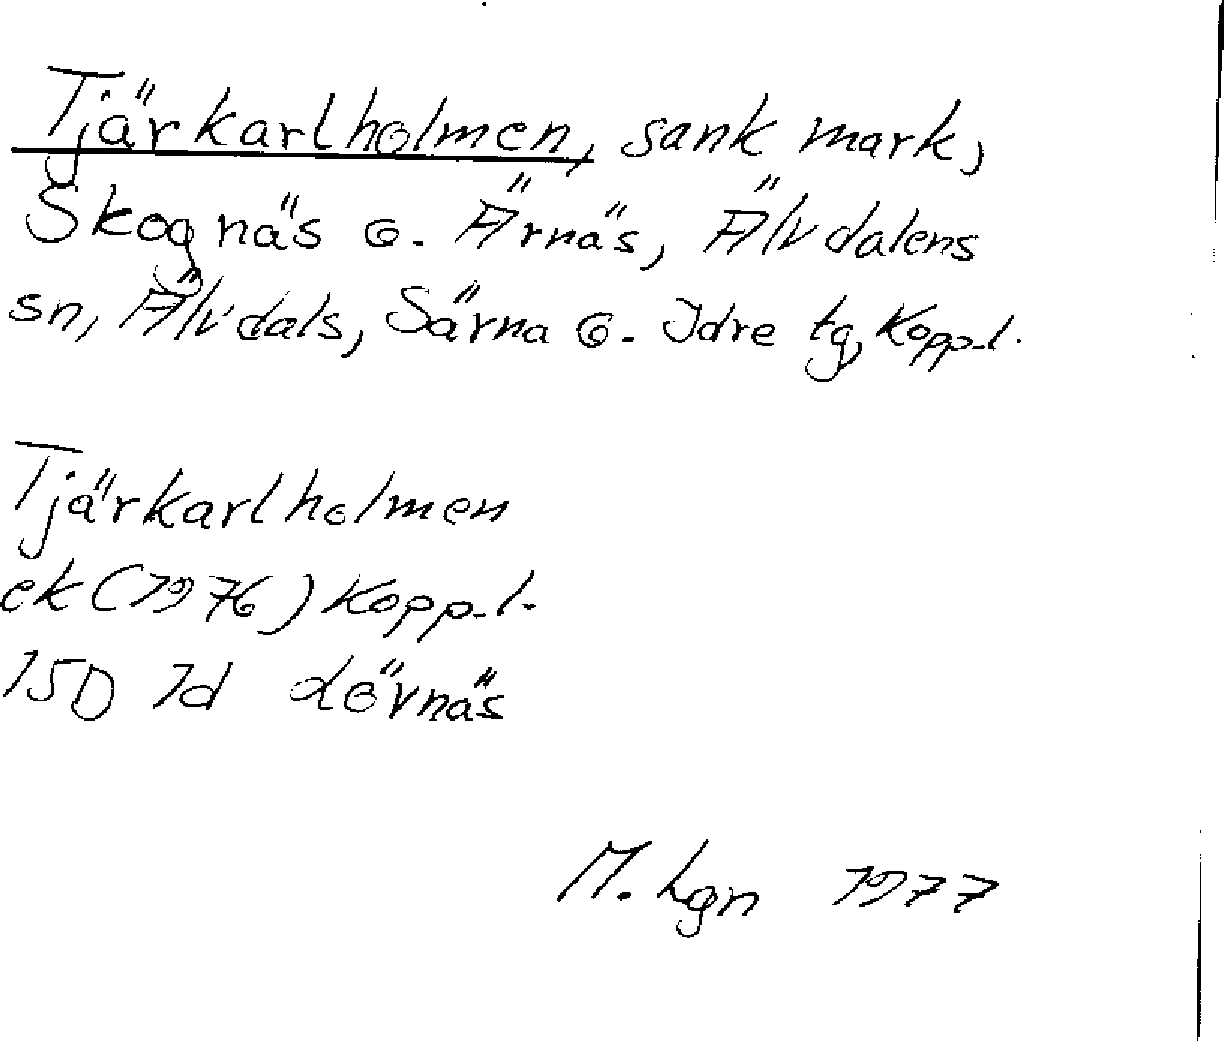 Tjärkarlholmen, sank mark,
Skognäs o. Ärnäs, Älvdalens
sn, Älvdals, Särna o. Idre tg, Kopp.l.
Tjärkarlholmen
ek (1976) Kopp.l.
15D 1d Lövnäs
M. Lgn 1977